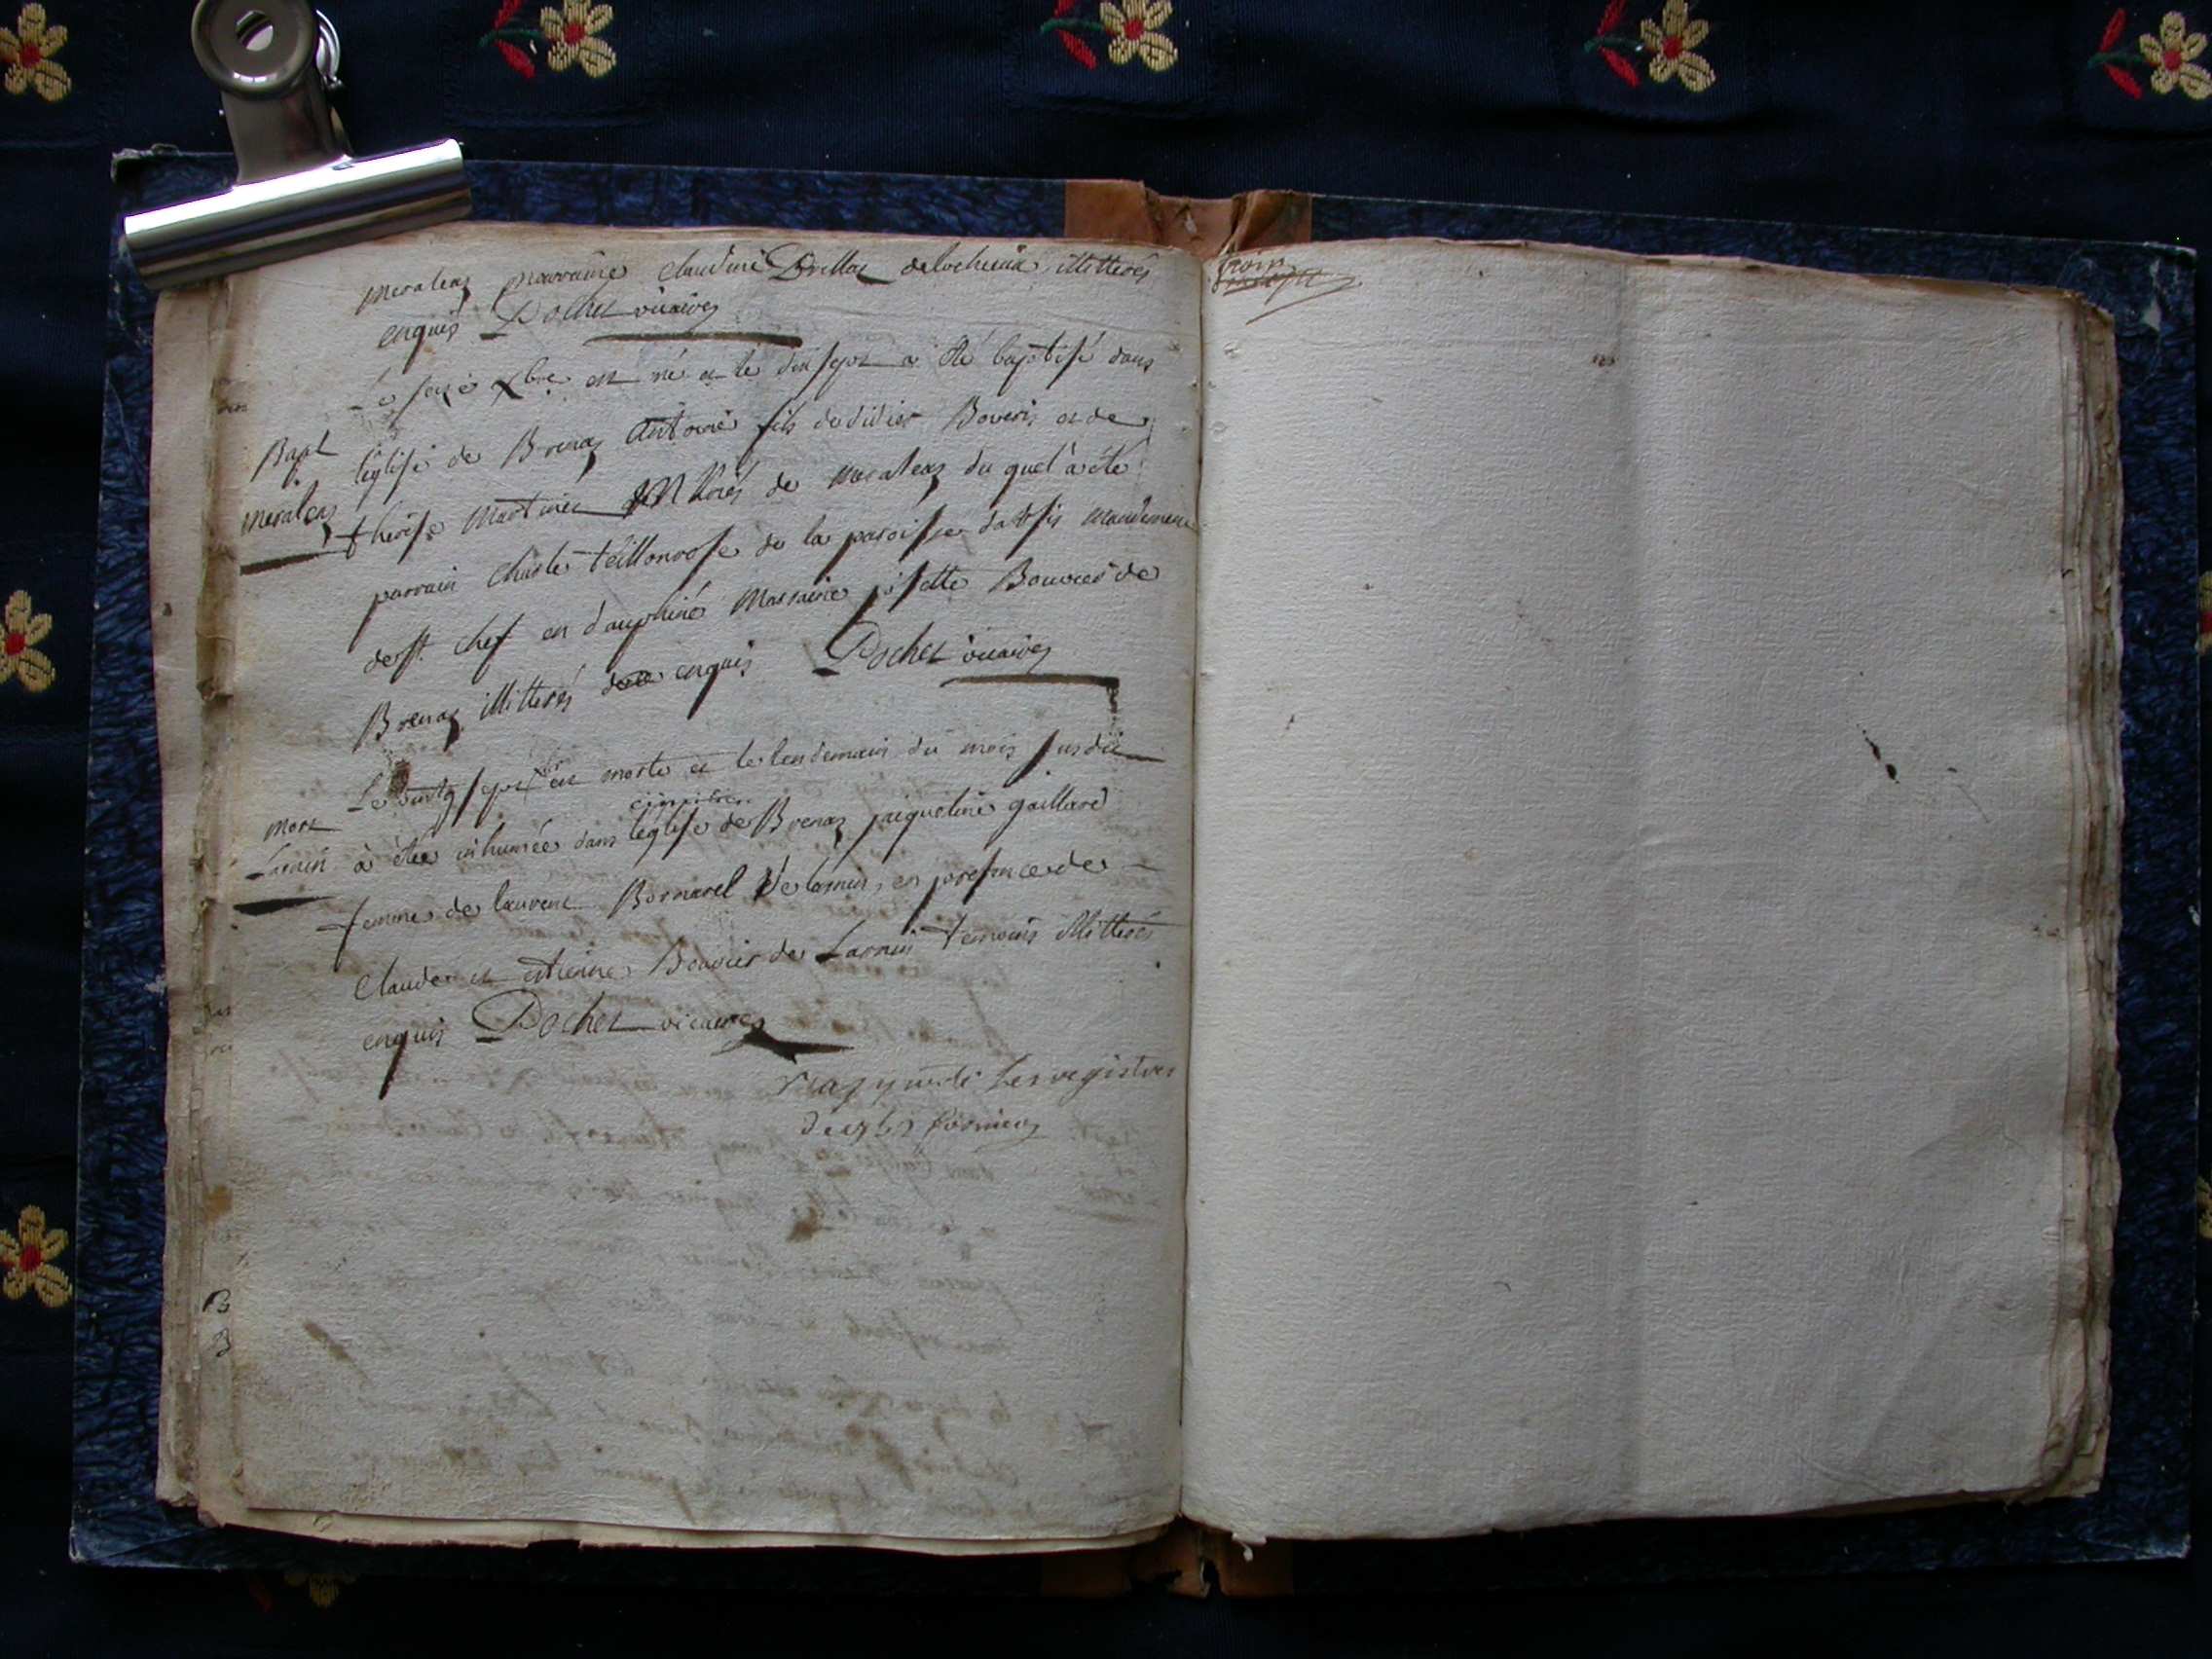 meraleaz marraine claudine Drillot delochieux illitterés
enquis Pochet vicaire
Le seize Xbre est né et le dix sept a été baptisé dans
Bapt
l'église de Brenaz antoine fils de didier Boveris et de
meraleaz
thérèse Martinet de meraleaz du quel a été
parrain charle teillonrose de la paroisse mandement
de st. chef en dauphiné Marraine josette Bouvier de
Brenaz illitterés enquis Pochet vicaire
Le vingt sept est morte et le lendemain du mois susdit
mort
cimitiere
Larnin
a étée inhumée dans l'église de Brenaz jaiqueline gaillard
femme de laurent Bornarel de larnin, en presence de
claude et etienne Bouvier de Larnin temoins illitterés
enquis Pochet vicaire
Les registres
B
B